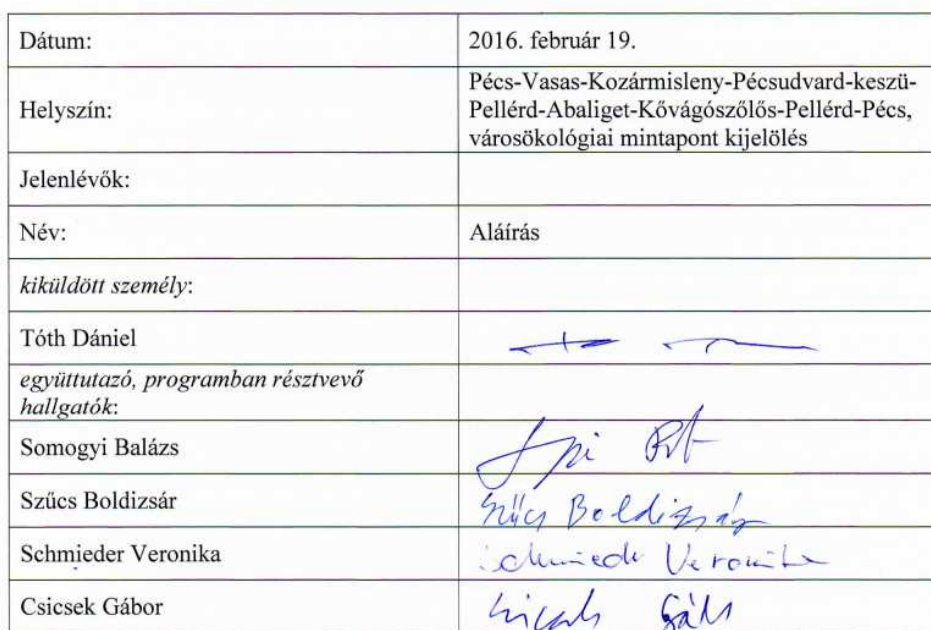 Dátum: 2016. február 19.
Helyszín: Pécs-Vasas-Kozármisleny-Pécsudvard-keszü-
Pellérd-Abaliget-Kővágószőlős-Pellérd-Pécs,
városökológiai mintapont kijelölés
Jelenlévők:
Név: Aláírás
kiküldött személy:
Tóth Dániel
együttutazó, programban résztvevő
hallgatók:
Somogyi Balázs
Szűcs Boldizsár Szűcs Boldizsár
Schmieder Veronika Schmieder Veronika
Csicsek Gábor Csicsek Gábor